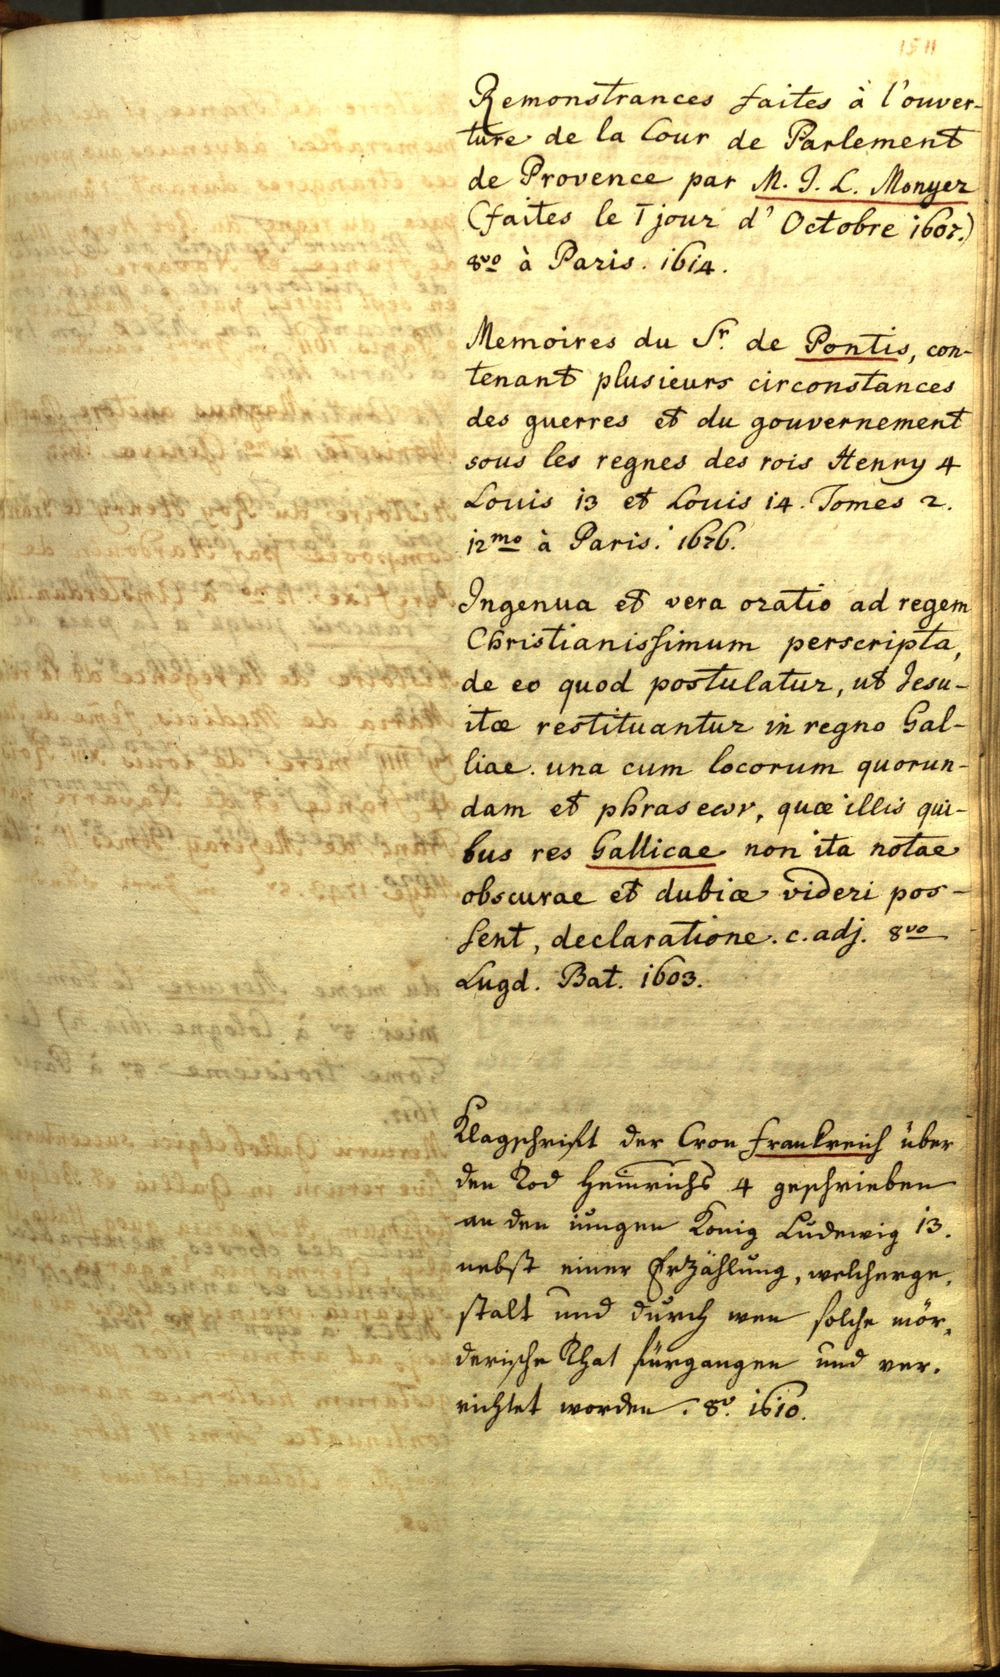 1511
Remonstrances faites à l'ouver-
ture de la Cour de Parlement
de Provence par M. J. L. Monyer
(faites le I jour d' Octobre 1607.)
8vo à Paris. 1614.
Memoires du Sr. de Pontis, con-
tenant plusieurs circonstances
des guerres et du gouvernement
sous les regnes des rois Henry 4
Louis 13 et Louis 14. Tomes 2.
12mo à Paris. 1676.
Ingenua et vera oratio ad regem
Christianissimum perscripta,
de eo quod postulatur, ut Jesu-
itæ restituantur in regno Gal-
liae. una cum locorum quorun-
dam et phraseων, quæ illis qui-
bus res Gallicae non ita notae
obscurae et dubiæ videri pos-
sent, declaratione. c. adj. 8vo
Lugd. Bat. 1603.
Klagschrift der Cron Franckreich über
den Tod Heinrichs 4 geschrieben
an den iungen König Ludewig 13.
nebst einer Erzählung, welcherge-
stalt und durch wen solche mör-
derische That fürgangen und ver-
richtet worden. 8o. 1610.